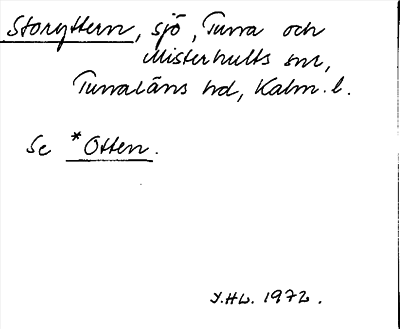 Storyttern, sjö, Tuna och
Misterhults snr,
Tunaläns hd, Kalm. l.
Se *Otten.
Y.HL. 1972.